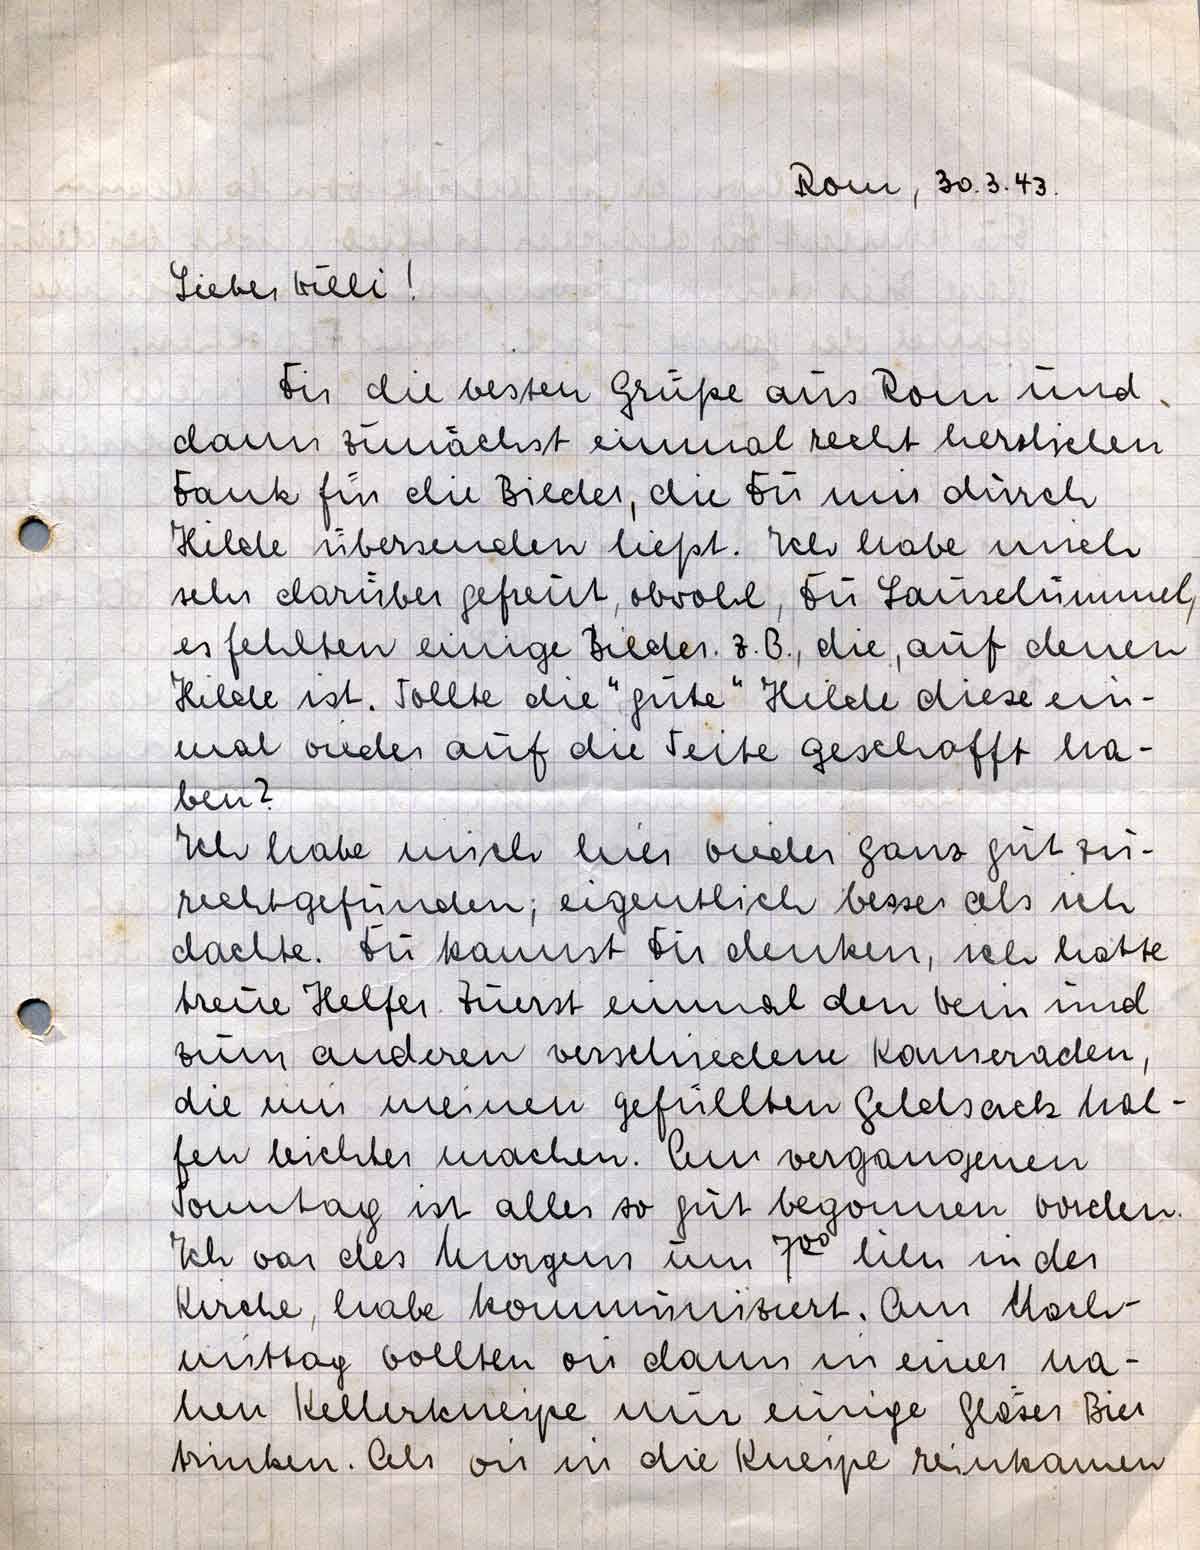 Rom, 30.3.43.
Lieber Willi!
Dir die besten Grüße aus Rom und
dann zunächst einmal recht herzlichen
Dank für die Bilder, die Du mir durch
Hilde übersenden ließt. Ich habe mich
sehr darüber gefreut, obwohl, Du Lauselümmel,
es fehlten einige Bilder. z.B., die, auf denen
Hilde ist. Sollte die "gute" Hilde diese ein-
mal wieder auf die Seite geschafft ha-
ben?
Ich habe mich hier wieder ganz gut zu-
rechtgefunden; eigentlich besser als ich
dachte. Du kannst Dir denken, ich hatte
treue Helfer. Zuerst einmal den Wein und
zum anderen verschiedene Kameraden,
die mir meinen gefüllten Geldsack hal-
fen leichter machen. Am vergangenen
Sonntag ist alles so gut begonnen worden.
Ich war des Morgens um 7⁰⁰ Uhr in der
Kirche, habe kommuniziert. Am Nach-
mittag wollten wir dann in einer na-
hen Kellerkneipe nur einige Gläser Bier
trinken. Als wir in die Kneipe reinkamen